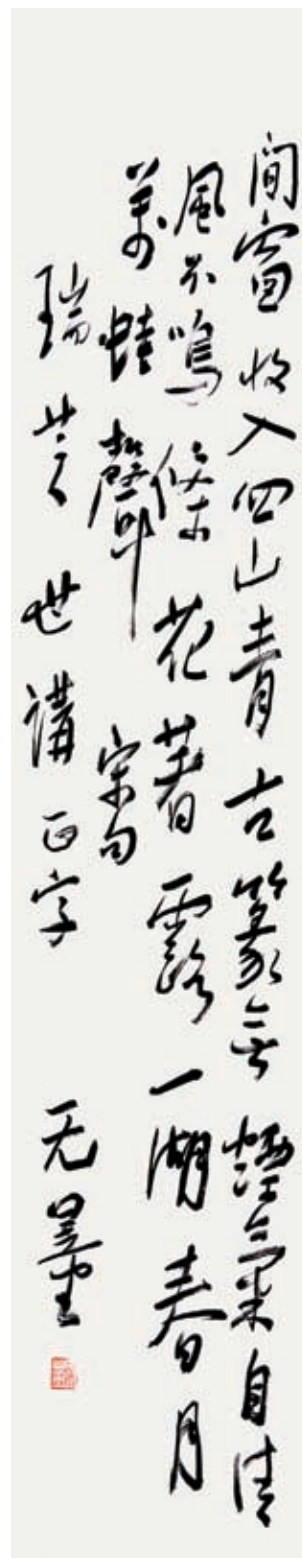 閒窗收入四山青古篆無煙氣自清
風不鳴條花著露一湖春月
萬蛙聲 宋句
瑞芝世講正字 无量